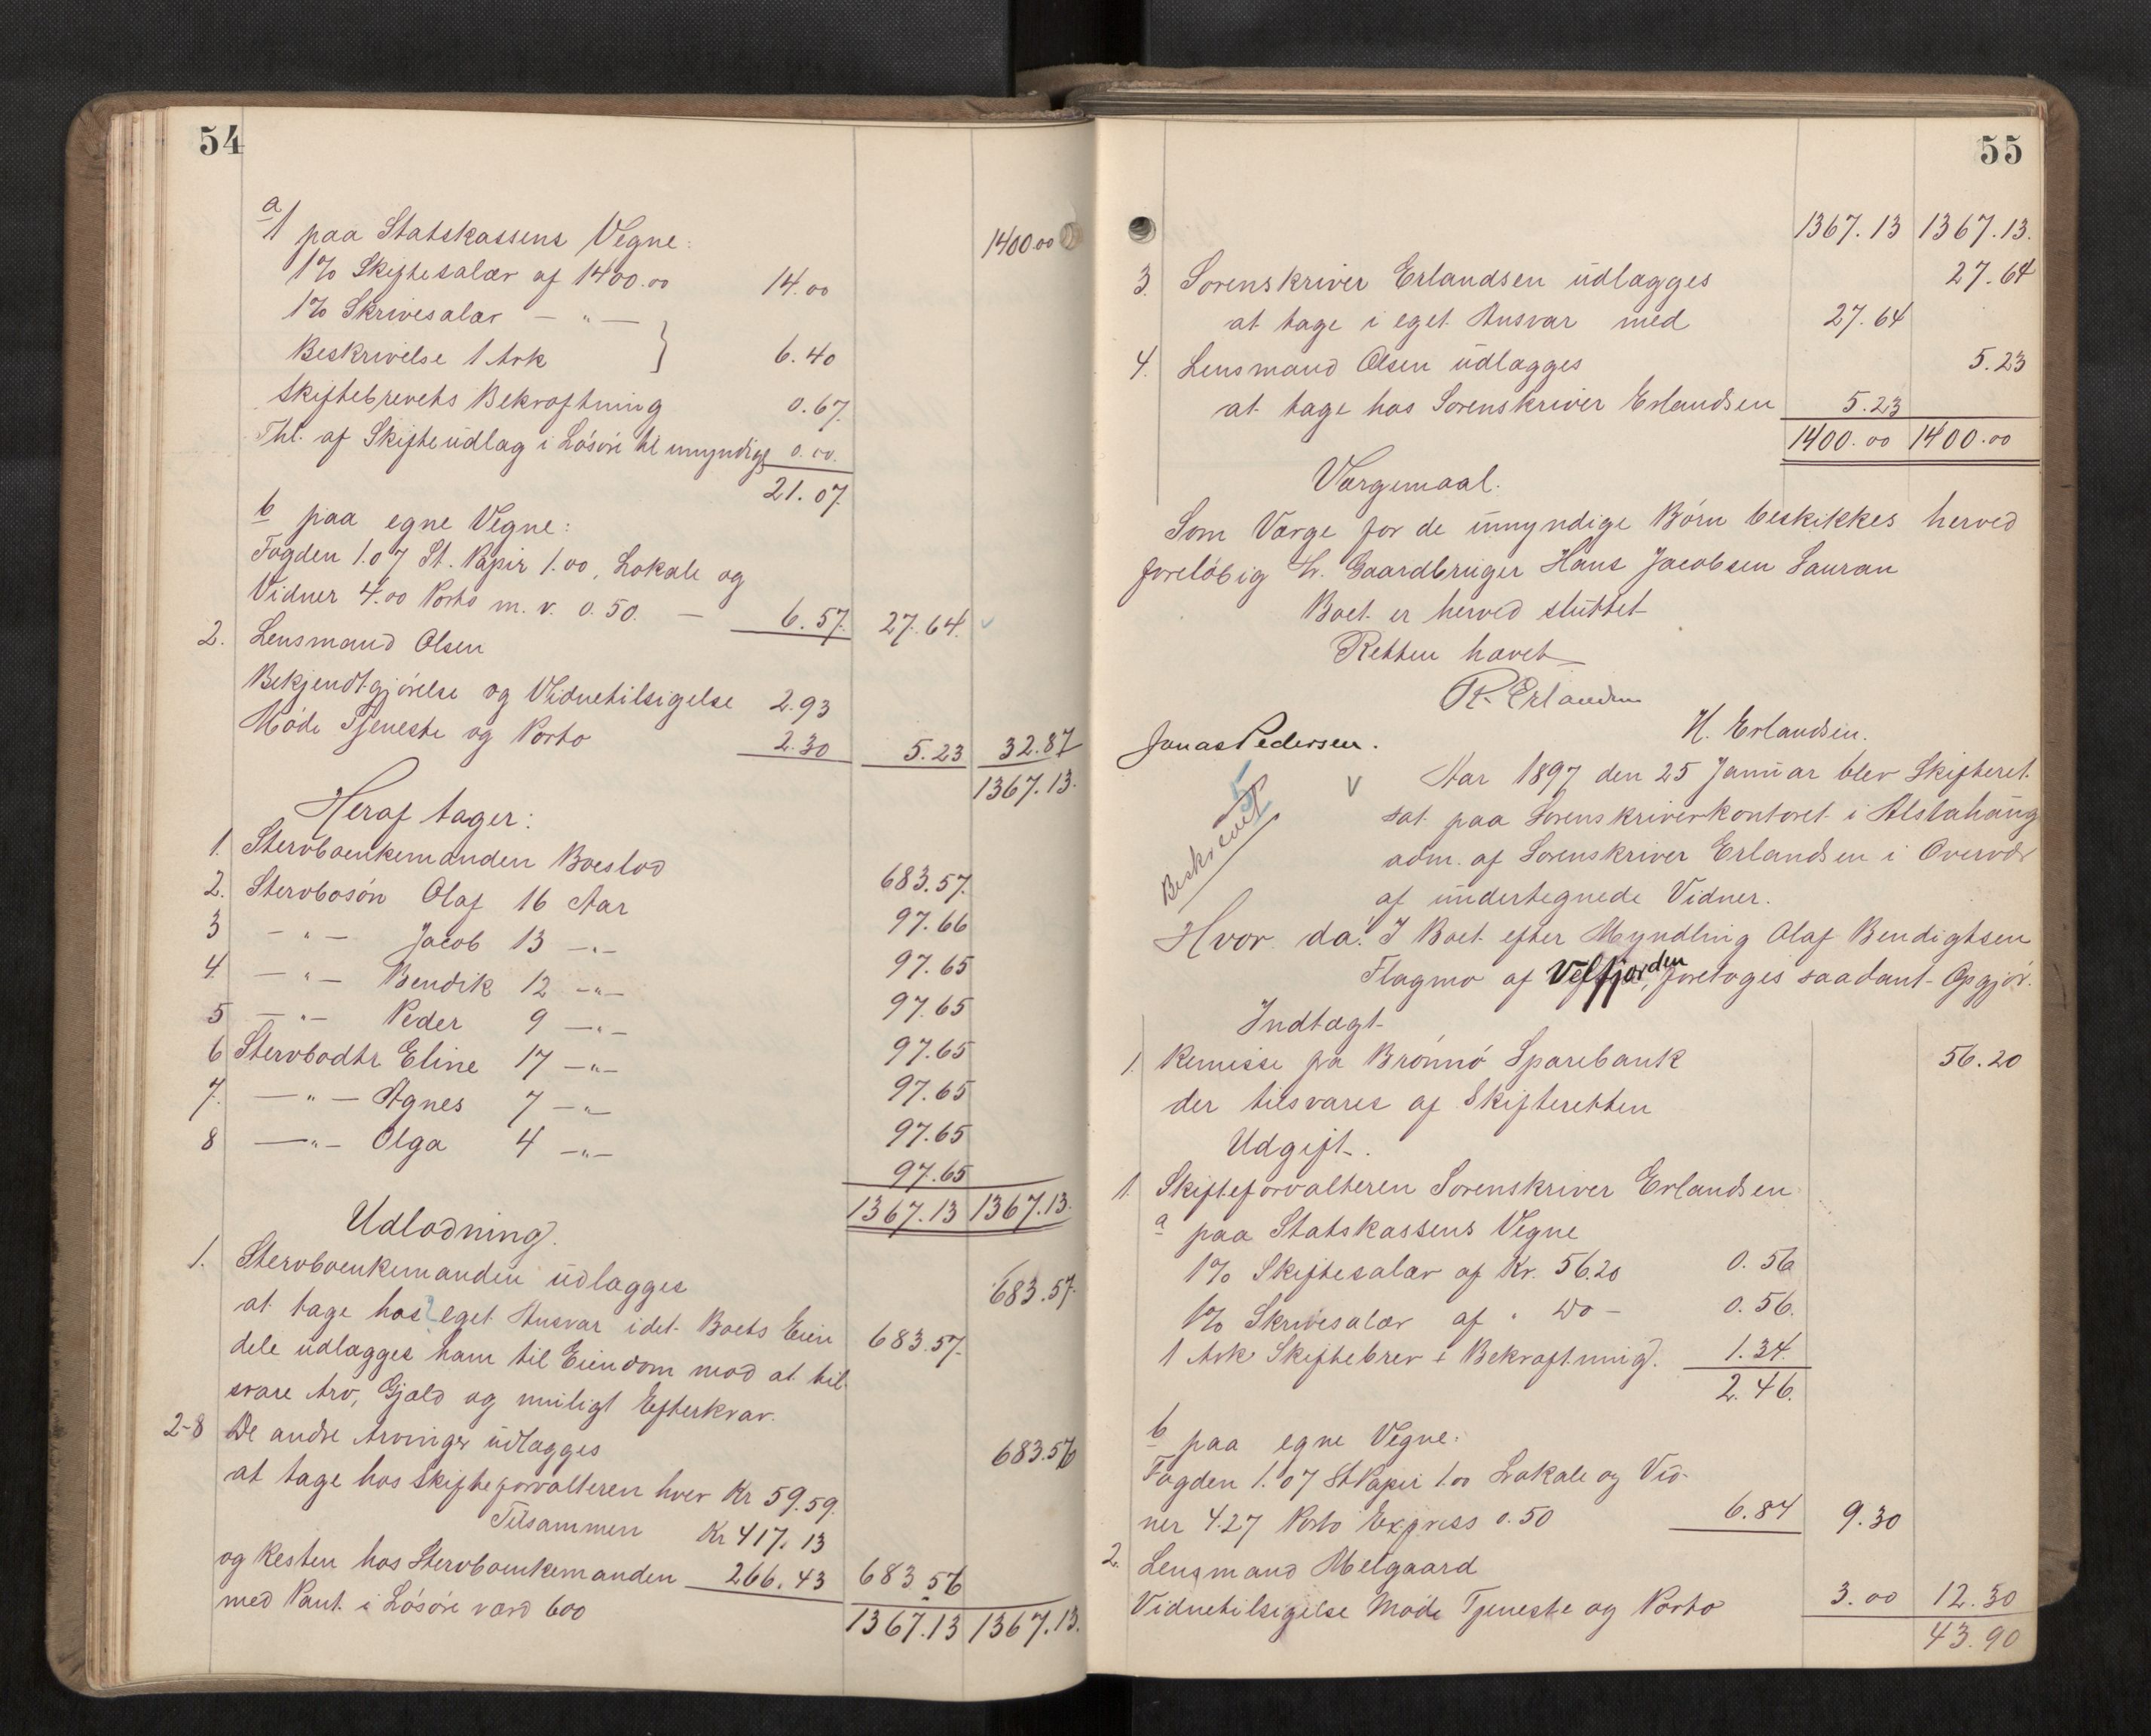 54
a/ paa Statskassens Vegne: 1400.00
1% Skiftesalær af 1400.00 14.00
1% Skrivesalær — " —
Beskrivelse 1 Ark } 6.40
Skiftebrevets Bekræftning 0.67
Thl. af Skifteudlæg i Løsøre til umyndige 0.00.
21.07
b paa egne Vegne:
Fogden 1.07 St. Papir 1.00, Lokale og
Vidner 4.00 Porto m. v. 0.50. — 6.57. 27.64.
2. Lensmand Olsen
Bekjendtgjørelse og Vidnetilsigelse 2.93
Møde Tjeneste og Porto 2.30 5.23 32.87
1367.13.
Heraf tager:
1. Stervboenkemanden Boeslod 683.57.
2. Stervbosøn Olaf 16 Aar 97.66
3 — " — Jacob 13 — " — 97.65
4. — " — Bendik 12 — " — 97.65
5 — " — Peder 9 — " — 97.65
6 Stervbodtr Eline 17 — " — 97.65
7. — " — Agnes 7 — " — 97.65
8 — " — Olga 4 — " — 97.65
1367.13 1367.13.
Udlodning.
1. Stervboenkemanden udlægges 683.57.
at tage hos eget Ansvar idet Boets Eien
dele udlægges ham til Eiendom mod at til 683.57.
svare Arv, Gjæld og muligt Efterkrav.
2-8 De andre Arvinger udlægges 683.56
at tage hos Skifteforvalteren hver Kr 59.59.
Tilsammen Kr 417.13
og Resten hos Stervboenkemanden 266.43 683.56
med Pant i Løsøre værd 600 1367.13 1367.13.
55
1367.13 1367.13.
3. Sorenskriver Erlandsen udlægges 27.64
at tage i eget Ansvar med 27.64
4. Lensmand Olsen udlægges 5.23
at tage hos Sorenskriver Erlandsen 5.23
1400.00 1400.00
Værgemaal.
Som Værge for de umyndige Børn beskikkes herved
foreløbig Hr. Gaardbruger Hans Jacobsen Sauran
Boet er herved sluttet
Retten hævet
R. Erlandsen
H. Erlandsen.
Jonas Pedersen.
Beskrevet
5
V Aar 1897 den 25 Januar blev Skifteret
sat paa Sorenskriverkontoret i Alstahaug
adm. af Sorenskriver Erlandsen i Overvær
af undertegnede Vidner.
Hvor da! I Boet efter Myndling Olaf Bendigtsen
Flagmo af Velfjorden, foretoges saadant Opgjør.
Indtægt
1. Remisse på Brønnø Sparebank 56.20
der tilsvares af Skifteretten
Udgift.
1. Skifteforvalteren Sorenskriver Erlandsen
a paa Statskassens Vegne
1% Skiftesalær af Kr. 56.20 0.56
1% Skrivesalær af " Do — 0.56.
1 Ark Skiftebrev + Bekræftning. 1.34.
2.46.
b paa egne Vegne:
Fogden 1.07 St Papir 1.00 Lokale og Vid-
ner 4.27 Porto Express 0.50 6.84 9.30
2. Lensmand Melgaard
Vidnetilsigelse Møde Tjeneste og Porto 3.00 12.30
43.90